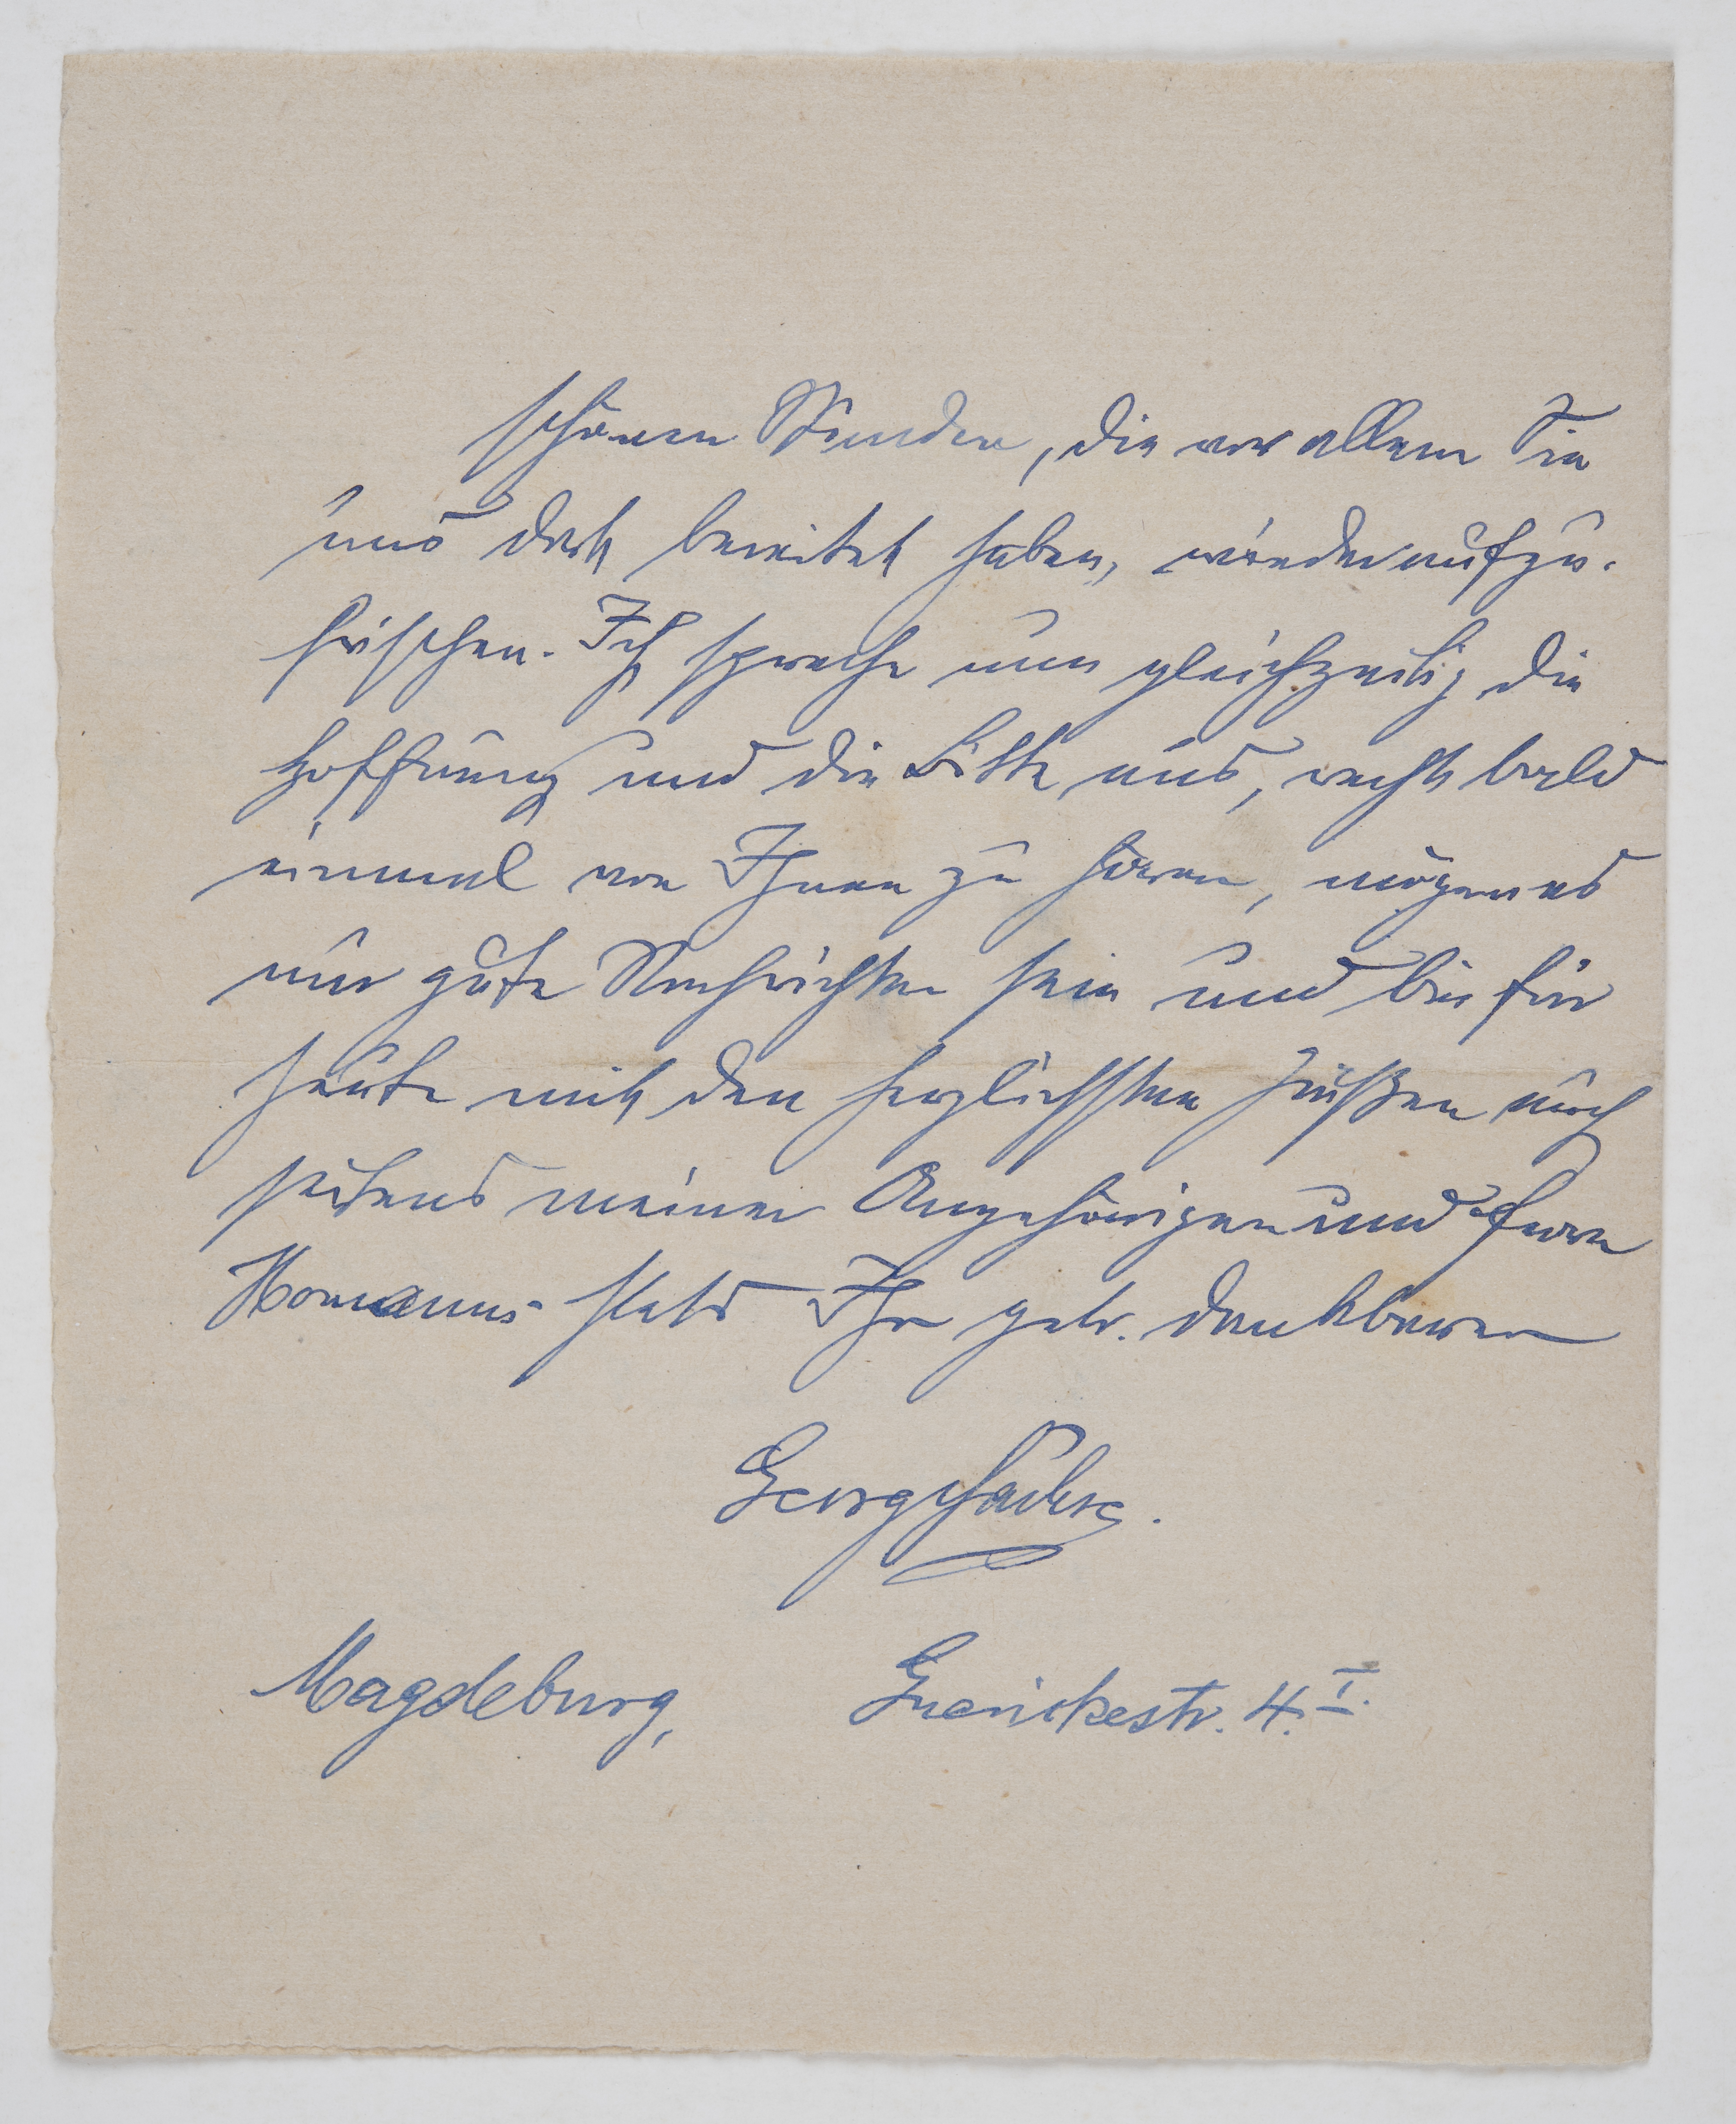 schönen Stunden, die vor allem Sie
uns dort bereitet haben, wiederaufzu-
frischen. Ich spreche nun gleichzeitig die
Hoffnung und die Bitte aus, recht bald
einmal von Ihnen zu hören, mögen es
nur gute Nachrichten sein und bin für
heute mit den herzlichsten Grüßen auch
seitens meiner Angehörigen und Herrn
stets Ihr dankbarer
Georg
Magdeburg, Guerickestr. 4. I.